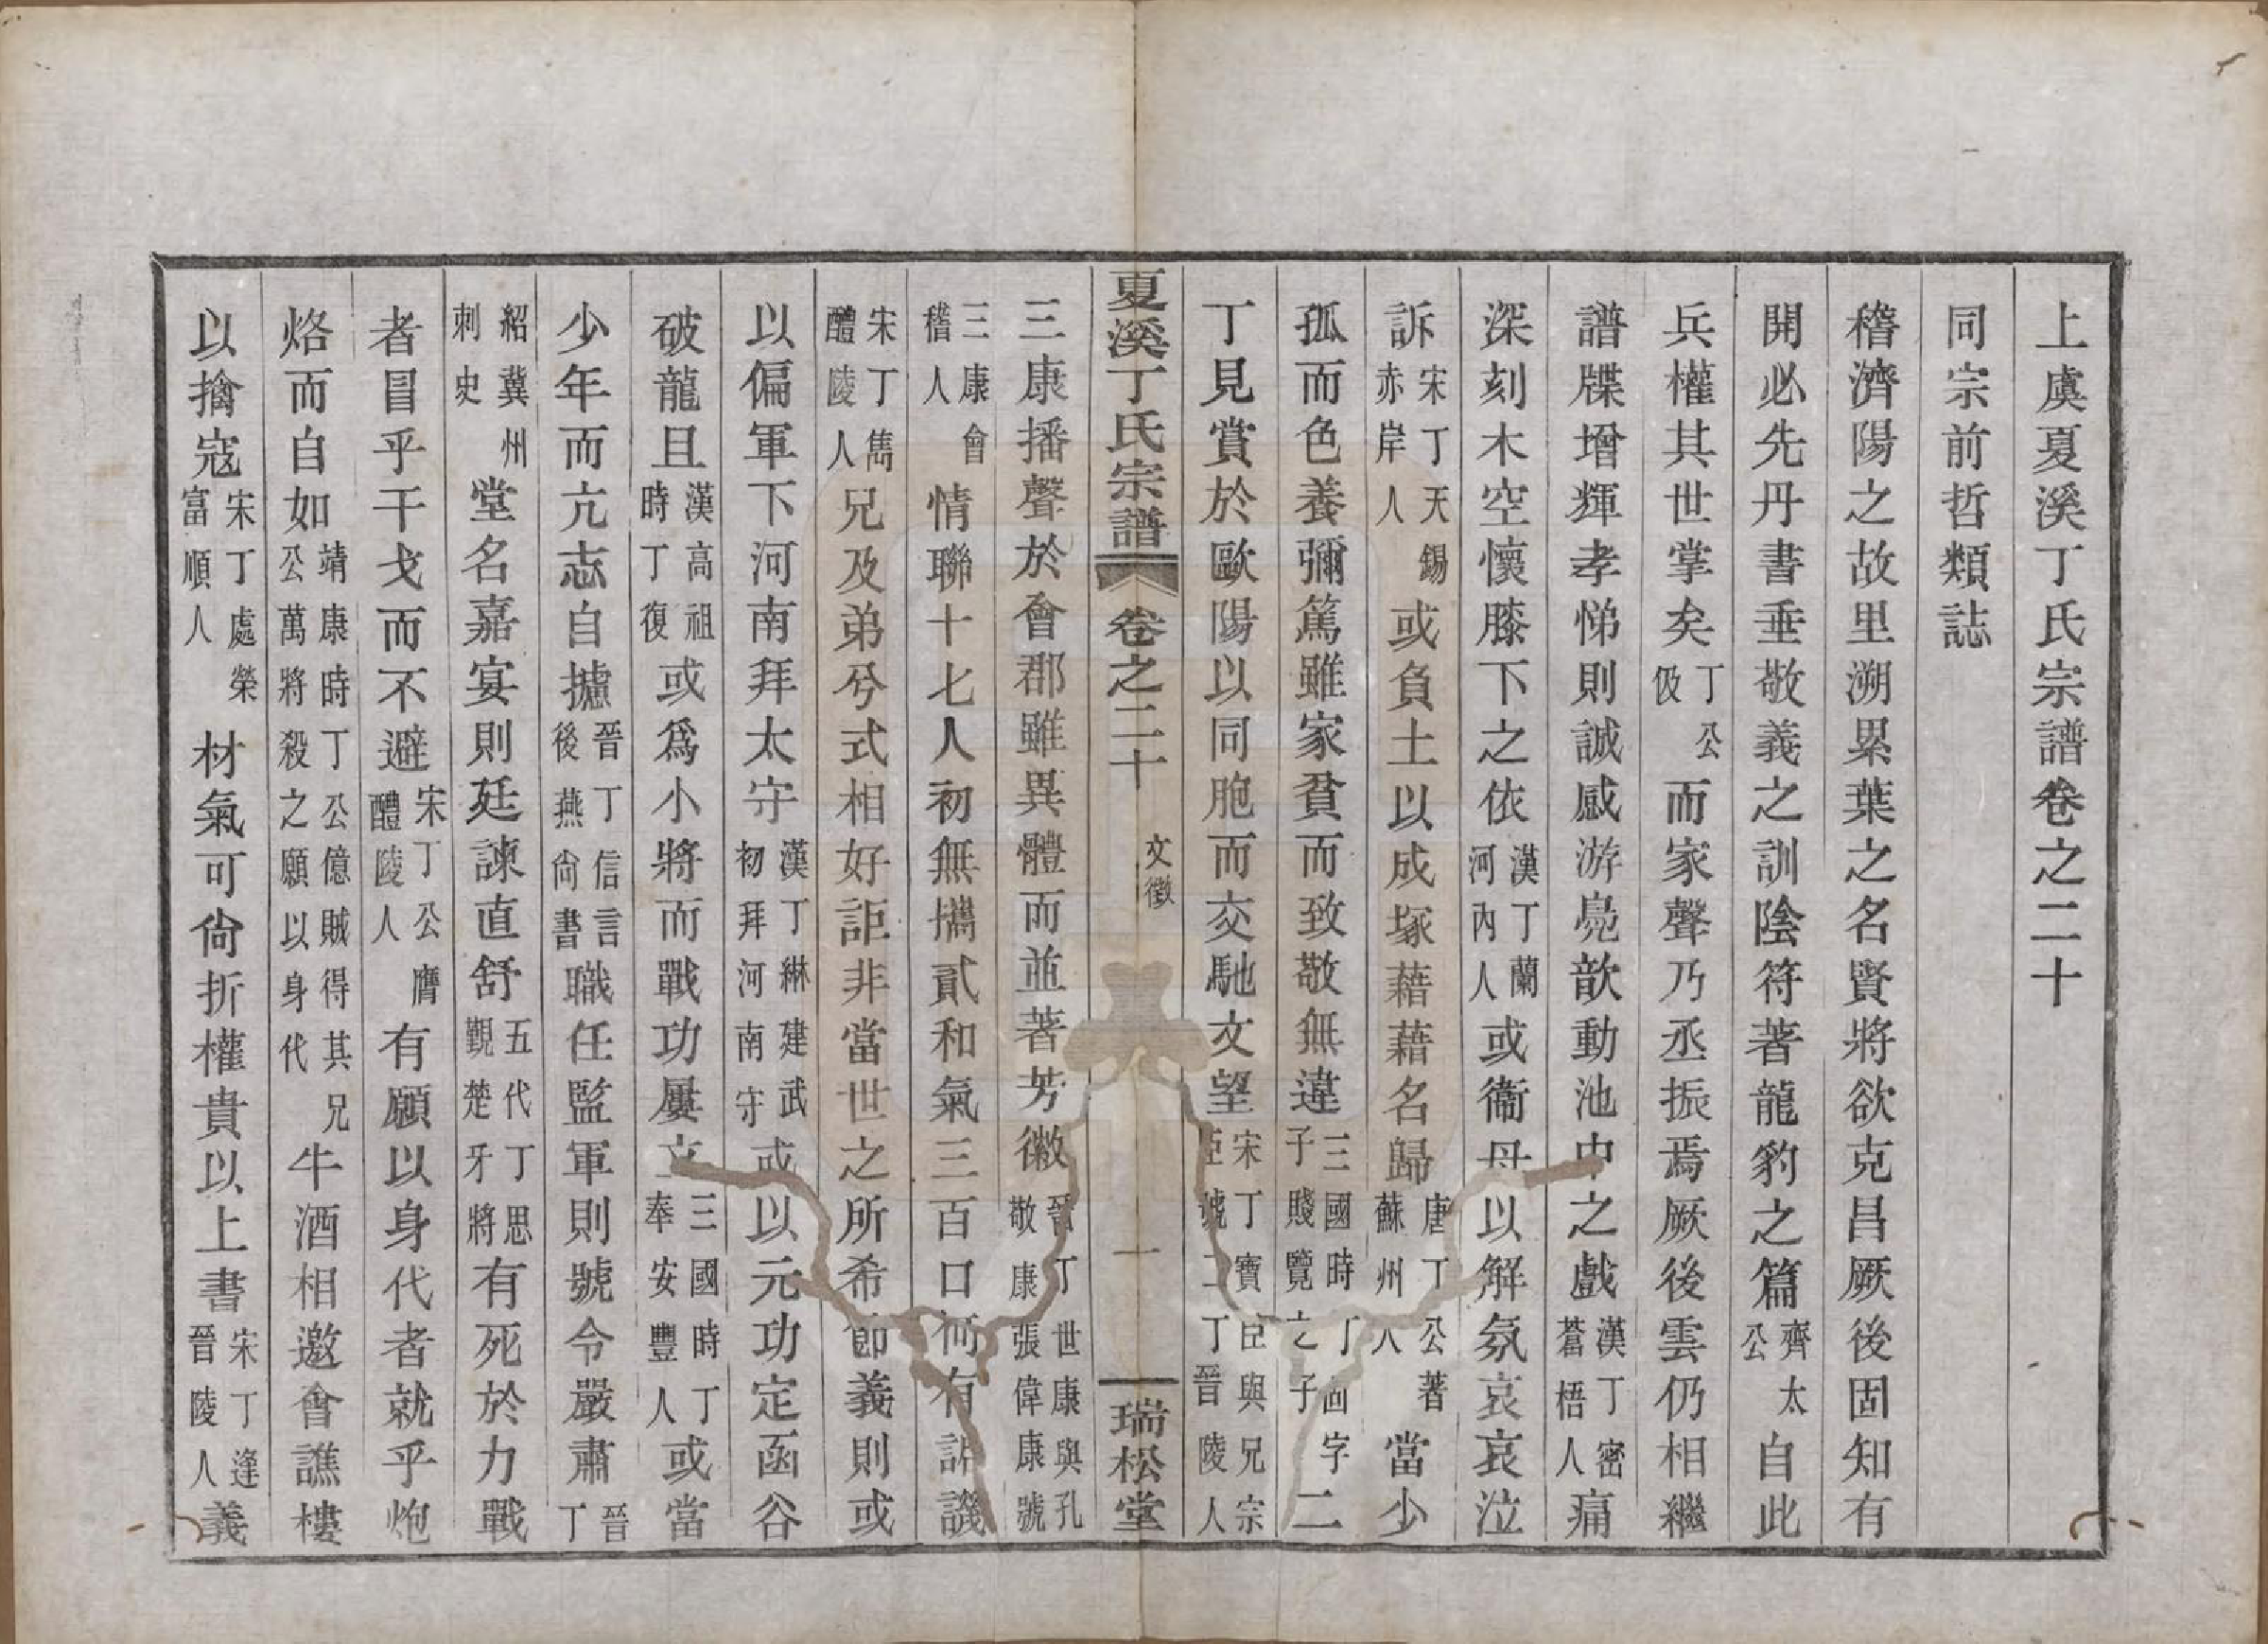 上虞夏溪丁氏宗譜卷之二十
同宗前哲類誌
稽濟陽之故里溯累葉之名賢將欲克昌厥後固知有
開必先丹書垂敬義之訓陰符著龍豹之篇齊太公自此
兵權其世掌矣丁公伋而家聲乃丕振焉厥後雲仍相繼
譜牒增輝孝悌則誠感游鳧歆動池中之戲漢丁密蒼梧人痛
深刻木空懷膝下之依漢丁蘭河內人或衞母以解氛哀哀泣
訴宋丁天錫赤岸人或負土以成塚藉藉名歸唐丁公著蘇州人當少
孤而色養彌篤雖家貧而致敬無違三國時丁固字子賤覽之子二
丁見賞於歐陽以同胞而交馳文望宋丁寶臣與兄宗臣號二丁晉陵人
夏溪丁氏宗譜 卷之二十 文徵 一 瑞松堂
三康播聲於會郡雖異體而並著芳徽晉丁世康與孔敬康張偉康號
三康會稽人情聯十七人初無攜貳和氣三百口何有詬譏
宋丁雋醴陵人兄及弟兮式相好詎非當世之所希節義則或
以偏軍下河南拜太守漢丁綝建武初拜河南守或以元功定函谷
破龍且漢高祖時丁復或爲小將而戰功屢立三國時丁奉安豐人或當
少年而亢志自攄晉丁信言後燕尙書職任監軍則號令嚴肅晉丁
紹冀州刺史堂名嘉宴則廷諫直舒五代丁思覲楚牙將有死於力戰
者冒乎干戈而不避宋丁公膺醴陵人有願以身代者就乎炮
烙而自如靖康時丁公億賊得其兄公萬將殺之願以身代牛酒相邀會譙樓
以擒寇宋丁處榮富順人材氣可尙折權貴以上書宋丁逢晉陵人義